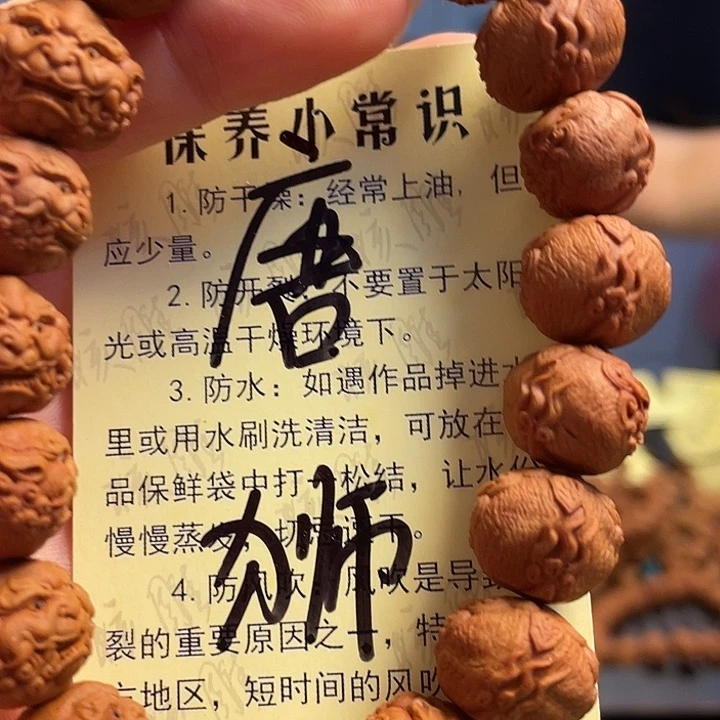 保养小常识
1. 防干燥：经常上油，但
应少量。
2. 防开裂：不要置于太阳
光或高温干燥环境下。
3. 防水：如遇作品掉进水
里或用水刷洗清洁，可放在
品保鲜袋中打个松结，让水份
慢慢蒸发，切忌
4. 防风吹：风吹是导致
裂的重要原因之一，特
方地区，短时间的风吹
唐
狮